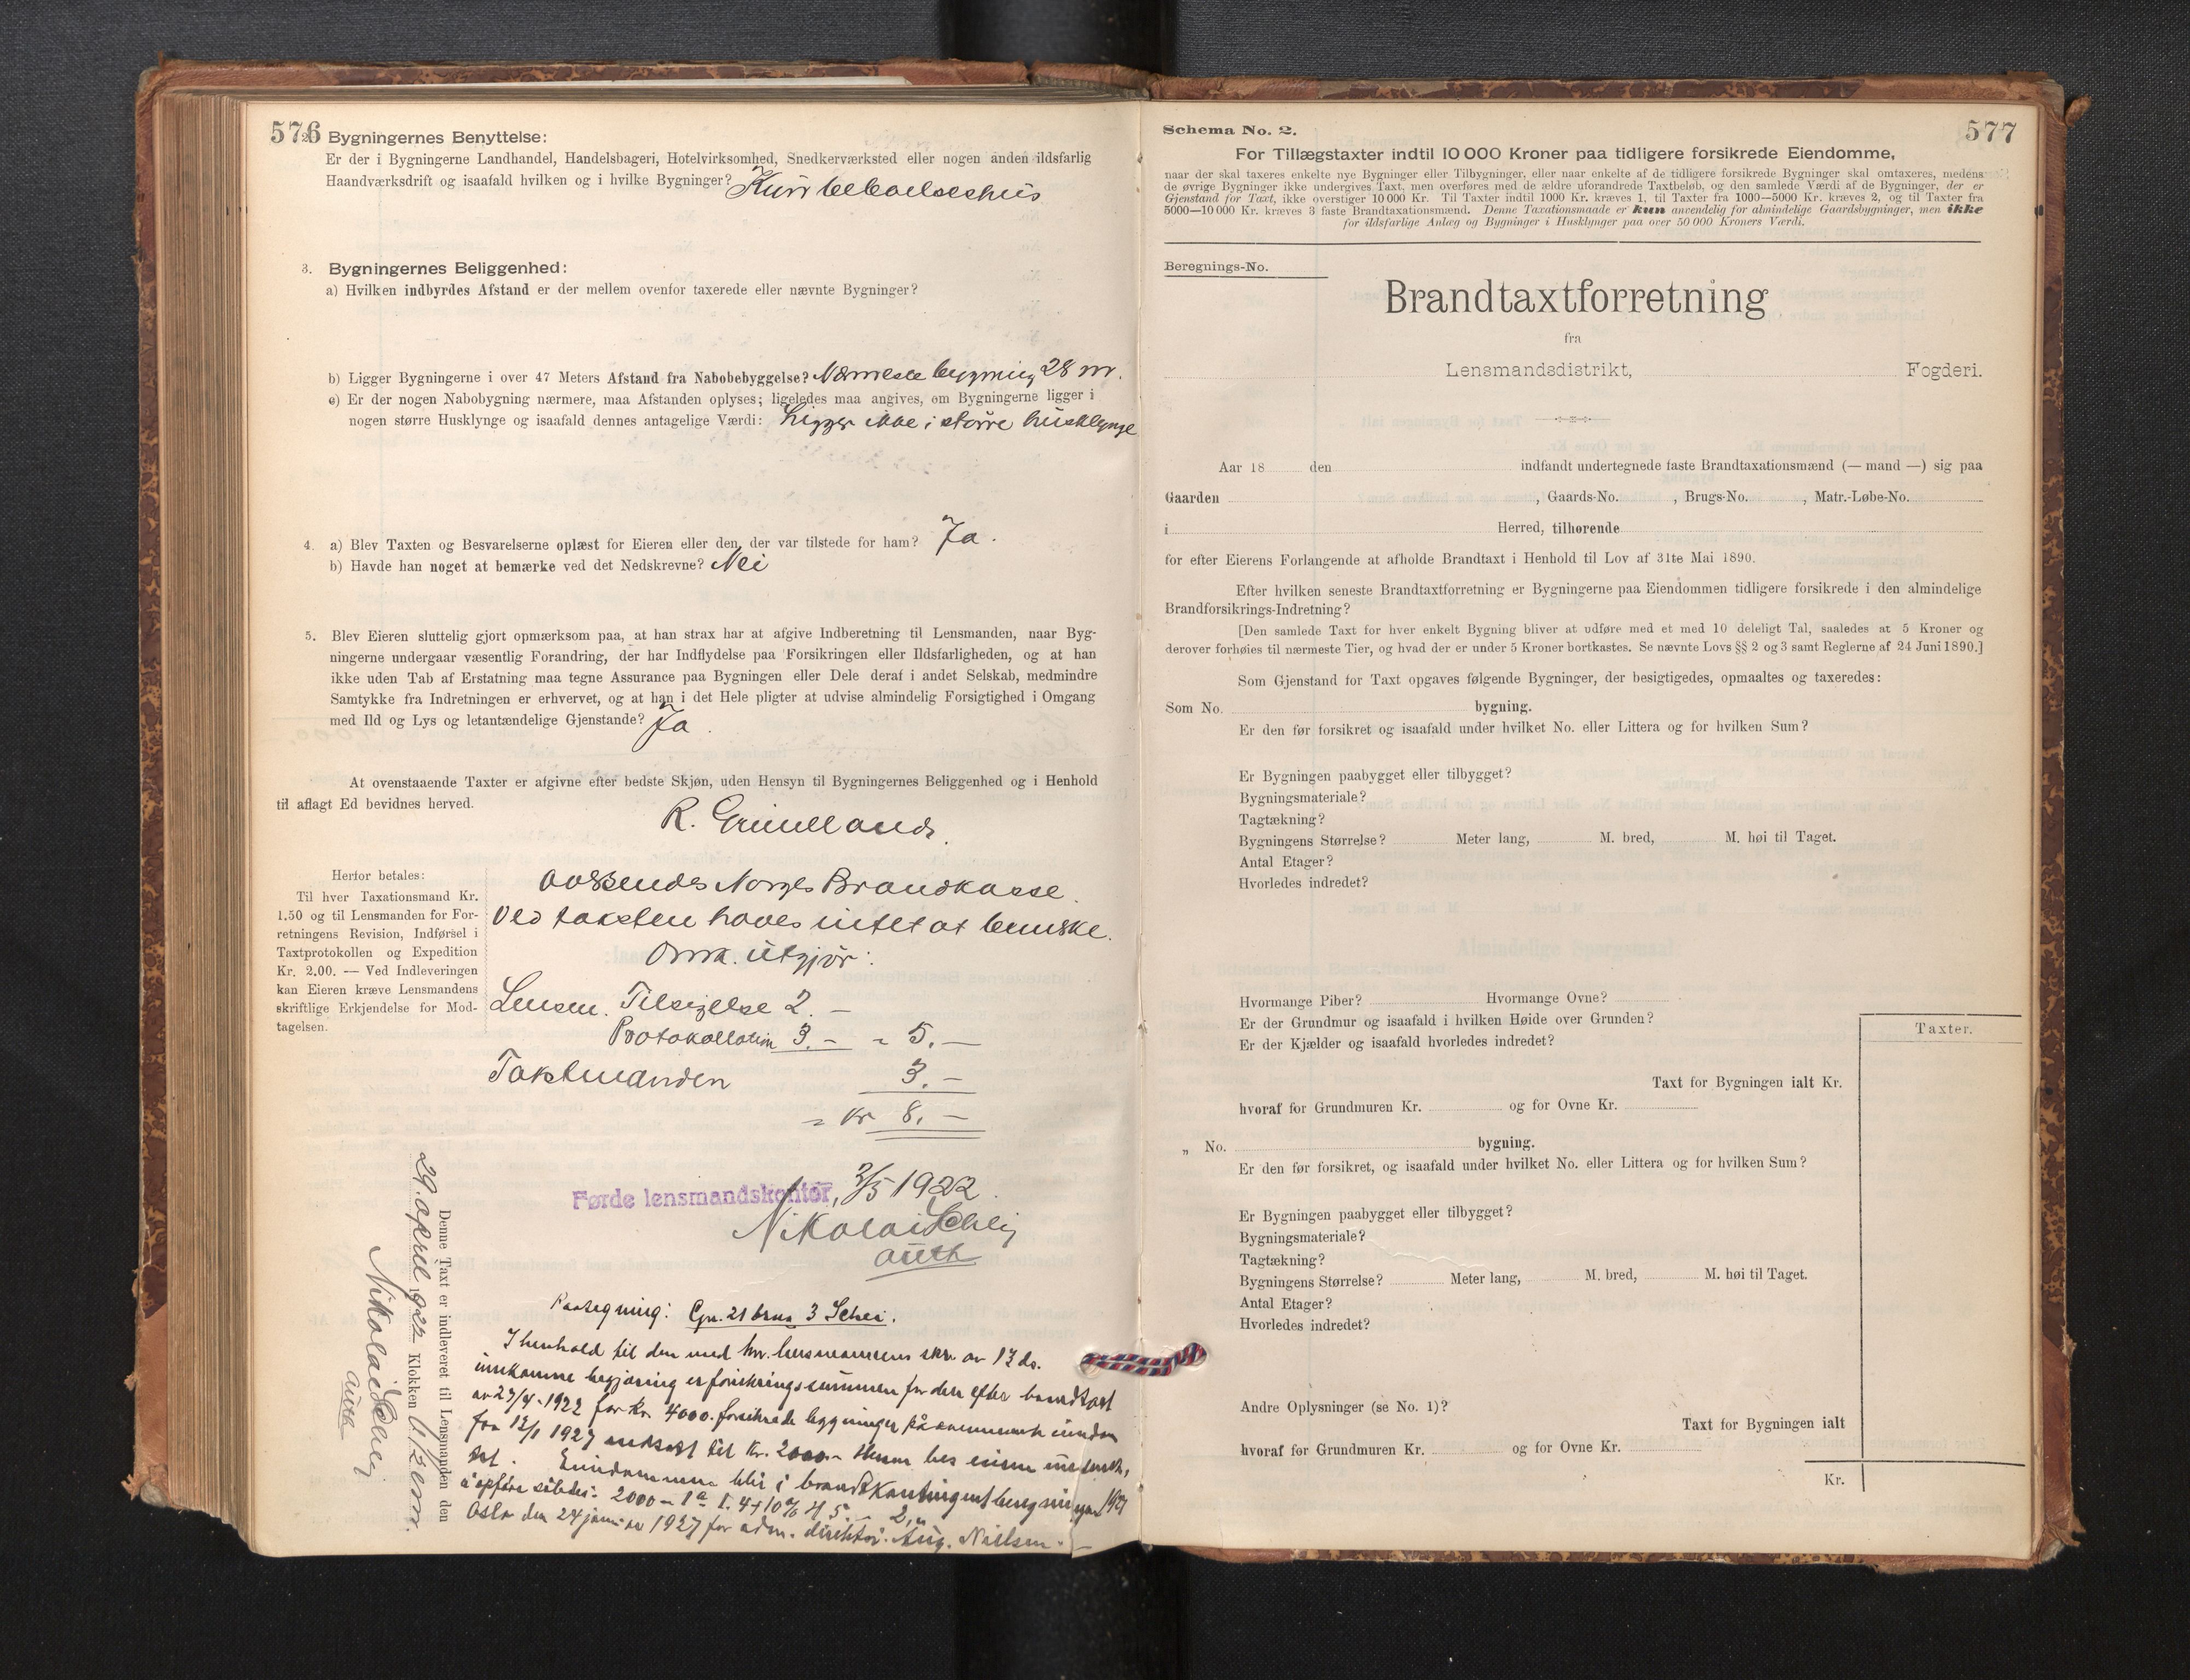 576
2. Bygningernes Benyttelse:
Er der i Bygningerne Landhandel, Handelsbageri, Hotelvirksomhed, Snedkerværksted eller nogen anden ildsfarlig
Haandværksdrift og isaafald hvilken og i hvilke Bygninger? Kun beboelseshus
3. Bygningernes Beliggenhed:
a) Hvilken indbyrdes Afstand er der mellem ovenfor taxerede eller nævnte Bygninger?
b) Ligger Bygningerne i over 47 Meters Afstand fra Nabobebyggelse? Nærmeste bygning 28 m.
c) Er der nogen Nabobygning nærmere, maa Afstanden oplyses; ligeledes maa angives, om Bygningerne ligger i
nogen større Husklynge og isaafald dennes antagelige Værdi: Ligger ikke i større husklynge
4. a) Blev Taxten og Besvarelserne oplæst for Eieren eller den, der var tilstede for ham? Ja.
b) Havde han noget at bemærke ved det Nedskrevne? Nei
5. Blev Eieren sluttelig gjort opmærksom paa, at han strax har at afgive Indberetning til Lensmanden, naar Byg-
ningerne undergaar væsentlig Forandring, der har Indflydelse paa Forsikringen eller Ildsfarligheden, og at han
ikke uden Tab af Erstatning maa tegne Assurance paa Bygningen eller Dele deraf i andet Selskab, medmindre
Samtykke fra Indretningen er erhvervet, og at han i det Hele pligter at udvise almindelig Forsigtighed i Omgang
med Ild og Lys og letantændelige Gjenstande? Ja.
At ovenstaaende Taxter er afgivne efter bedste Skjøn, uden Hensyn til Bygningernes Beliggenhed og i Henhold
til aflagt Ed bevidnes herved.
R. Grimelland.
Herfor betales:
Til hver Taxationsmand Kr.
1.50 og til Lensmanden for For-
retningens Revision, Indførsel i
Taxtprotokollen og Expedition
Kr. 2.00. — Ved Indleveringen
kan Eieren kræve Lensmandens
skriftlige Erkjendelse for Mod-
tagelsen.
Norges Brandkasse.
Ved taksten haves intet at bemerke.
Omk. utgjør:
Lensm. Tilsigelse 2. –
Protokollation 3. – = 5. –
Takstmanden 3. –
= Kr 8. –
Førde lensmandskontor, 2/5 1922.
Nikolai Schei
auth
Denne Taxt er indleveret til Lensmanden den
29. april 1922 Klokken
Nikolai Schei
auth
Paategning: Gn. 21 brno 3 Schei.
I henhold til den med hr. lensmannens skr. av 13 ds.
innkomne begjæring er forsikringssummen for den efter brandtakst
av 27/4-1922 for Kr. 4000. forsikrede bygninger på eiendom
fra 12/1 1927 nedsatt til Kr. 2000.–
Eiendommen blir i brandkontingentberegningen 1927
å opføre således: 2000 –
Oslo den 24 januar 1927 for adm. direktør. Aug. Nielsen.
Schema No. 2.
577
For Tillægstaxter indtil 10 000 Kroner paa tidligere forsikrede Eiendomme,
naar der skal taxeres enkelte nye Bygninger eller Tilbygninger, eller naar enkelte af de tidligere forsikrede Bygninger skal omtaxeres, medens
de øvrige Bygninger ikke undergives Taxt, men overføres med de ældre uforandrede Taxtbeløb, og den samlede Værdi af de Bygninger, der er
Gjenstand for Taxt, ikke overstiger 10 000 Kr. Til Taxter indtil 1000 Kr. kræves 1, til Taxter fra 1000—5000 Kr. kræves 2, og til Taxter fra
5000—10 000 Kr. kræves 3 faste Brandtaxationsmænd. Denne Taxationsmaade er kun anvendelig for almindelige Gaardsbygninger, men ikke
for ildsfarlige Anlæg og Bygninger i Husklynger paa over 50 000 Kroners Værdi.
Beregnings-No.
Brandtaxtforretning
fra
Lensmandsdistrikt, Fogderi.
Aar 18 den indfandt undertegnede faste Brandtaxationsmænd (— mand —) sig paa
Gaarden , Gaards-No. , Brugs-No. , Matr.-Løbe-No.
i Herred, tilhørende
for efter Eierens Forlangende at afholde Brandtaxt i Henhold til Lov af 31te Mai 1890.
Efter hvilken seneste Brandtaxtforretning er Bygningerne paa Eiendommen tidligere forsikrede i den almindelige
Brandforsikrings-Indretning?
[Den samlede Taxt for hver enkelt Bygning bliver at udføre med et med 10 deleligt Tal, saaledes at 5 Kroner og
derover forhøies til nærmeste Tier, og hvad der er under 5 Kroner bortkastes. Se nævnte Lovs §§ 2 og 3 samt Reglerne af 24 Juni 1890.]
Som Gjenstand for Taxt opgaves følgende Bygninger, der besigtigedes, opmaaltes og taxeredes:
Som No. bygning.
Er den før forsikret og isaafald under hvilket No. eller Littera og for hvilken Sum?
Er Bygningen paabygget eller tilbygget?
Bygningsmateriale?
Tagtækning?
Bygningens Størrelse? Meter lang, M. bred, M. høi til Taget.
Antal Etager?
Hvorledes indredet?
Hvormange Piber? Hvormange Ovne?
Er der Grundmur og isaafald i hvilken Høide over Grunden?
Er der Kjælder og isaafald hvorledes indredet?
Taxter.
Taxt for Bygningen ialt Kr.
hvoraf for Grundmuren Kr. og for Ovne Kr.
„ No. bygning.
Er den før forsikret, og isaafald under hvilket No. eller Littera og for hvilken Sum?
Er Bygningen paabygget eller tilbygget?
Bygningsmateriale?
Tagtækning?
Bygningens Størrelse? Meter lang, M. bred, M. høi til Taget.
Antal Etager?
Hvorledes indredet?
Andre Oplysninger (se No. 1)?
Taxt for Bygningen ialt
hvoraf for Grundmuren Kr. og for Ovne Kr.
Kr.